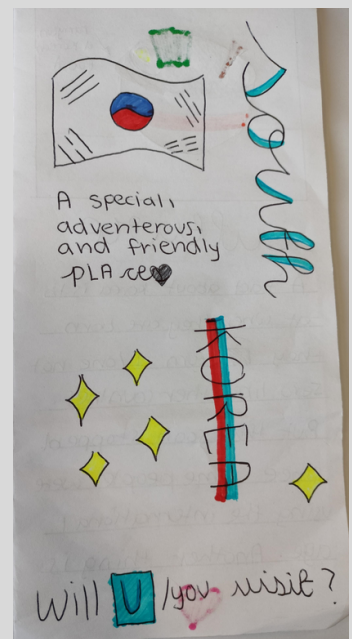 South
A special,
adventerous,
and friendly
PLAce
KOREA
Will U /you visit?